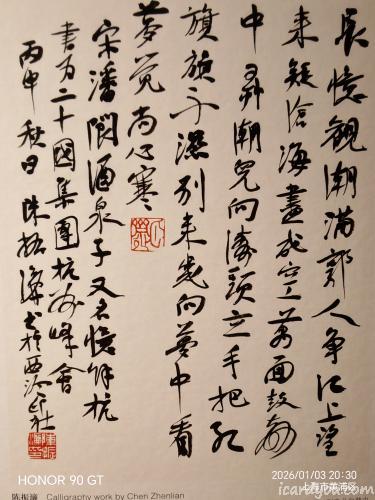 長憶観潮滿郭人争江上望
来疑滄海盡成空萬面鼓声
中弄潮兒向濤頭立手把红
旗旗不濕别来幾向夢中看
夢觉尚心寒
宋潘閬酒泉子又名憶餘杭
書为二十國集團杭州峰會
丙申秋日陳振濂書於西泠印社
陈振濂 Calligraphy work by Chen Zhenlian
HONOR 90 GT
2026/01/03 20:30